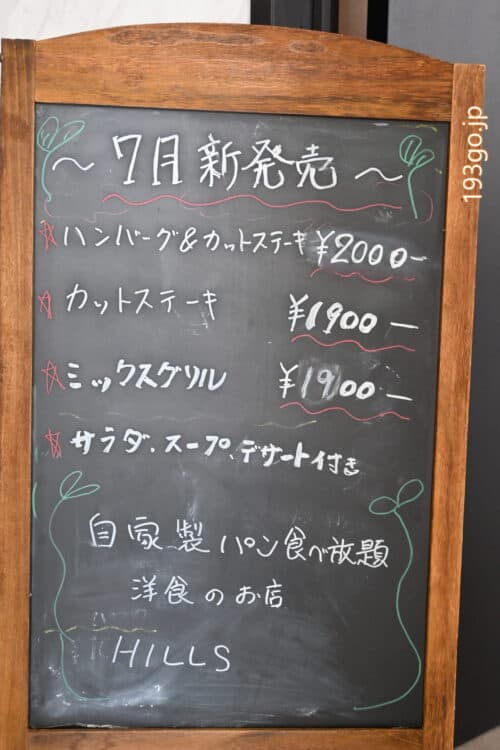 ～ 7月 新発売 ～
ハンバーグ&カットステーキ ¥2000-
カットステーキ ¥1900-
ミックスグリル ¥1900-
サラダ、スープ、デザート付き
自家製パン食べ放題
洋食のお店
HILLS
193go.jp